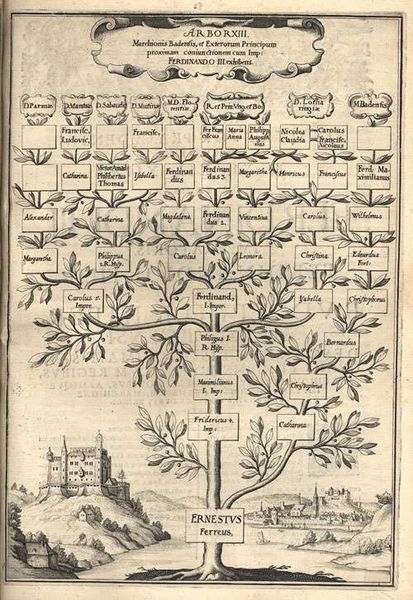 ARBOR XIII.
Marchionis Badensis, et Exterorum Principum
proximam coniunctionem cum Imp:
FERDINANDO III exhibens.
D. Parmæ
D. Mantuæ
D. Sabaudiæ
D. Mutinæ
M.D. Flo
rentiæ
R. et Prin. Vng. et Bo.
D. Lotha
ringiæ
M. Badensis
Francisc,
Ludovic,
Francisc,
Fer Fran
ciscus
Maria
Anna
Philipp
Augustinus
Nicolea
Claudia
Carolus
Francisc,
Nicolaus
Catharina
Victor Amad
Philibertus
Thomas
Isabella
Ferdinan
dus
Ferdinan
dus 3.
Margaretha
Henricus
Franciscus
Ferd: Ma
ximilianus
Alexander
Catharina
Magdalena
Ferdinan
dus 2.
Vincentius
Carolus.
Wilhelmus
Margaretha
Philippus
2. R. Hisp.
Carolus
Leonora
Christina
Eduardus
Fort.
Carolus 5.
Imper.
Ferdinand,
I. Imper.
Isabella
Christophorus
Philippus I.
R. Hisp.
Bernardus
Maximilianus
I. Imp:
Christophorus
Fridericus 4.
Imp:
Catharina
ERNESTVS
Ferreus,